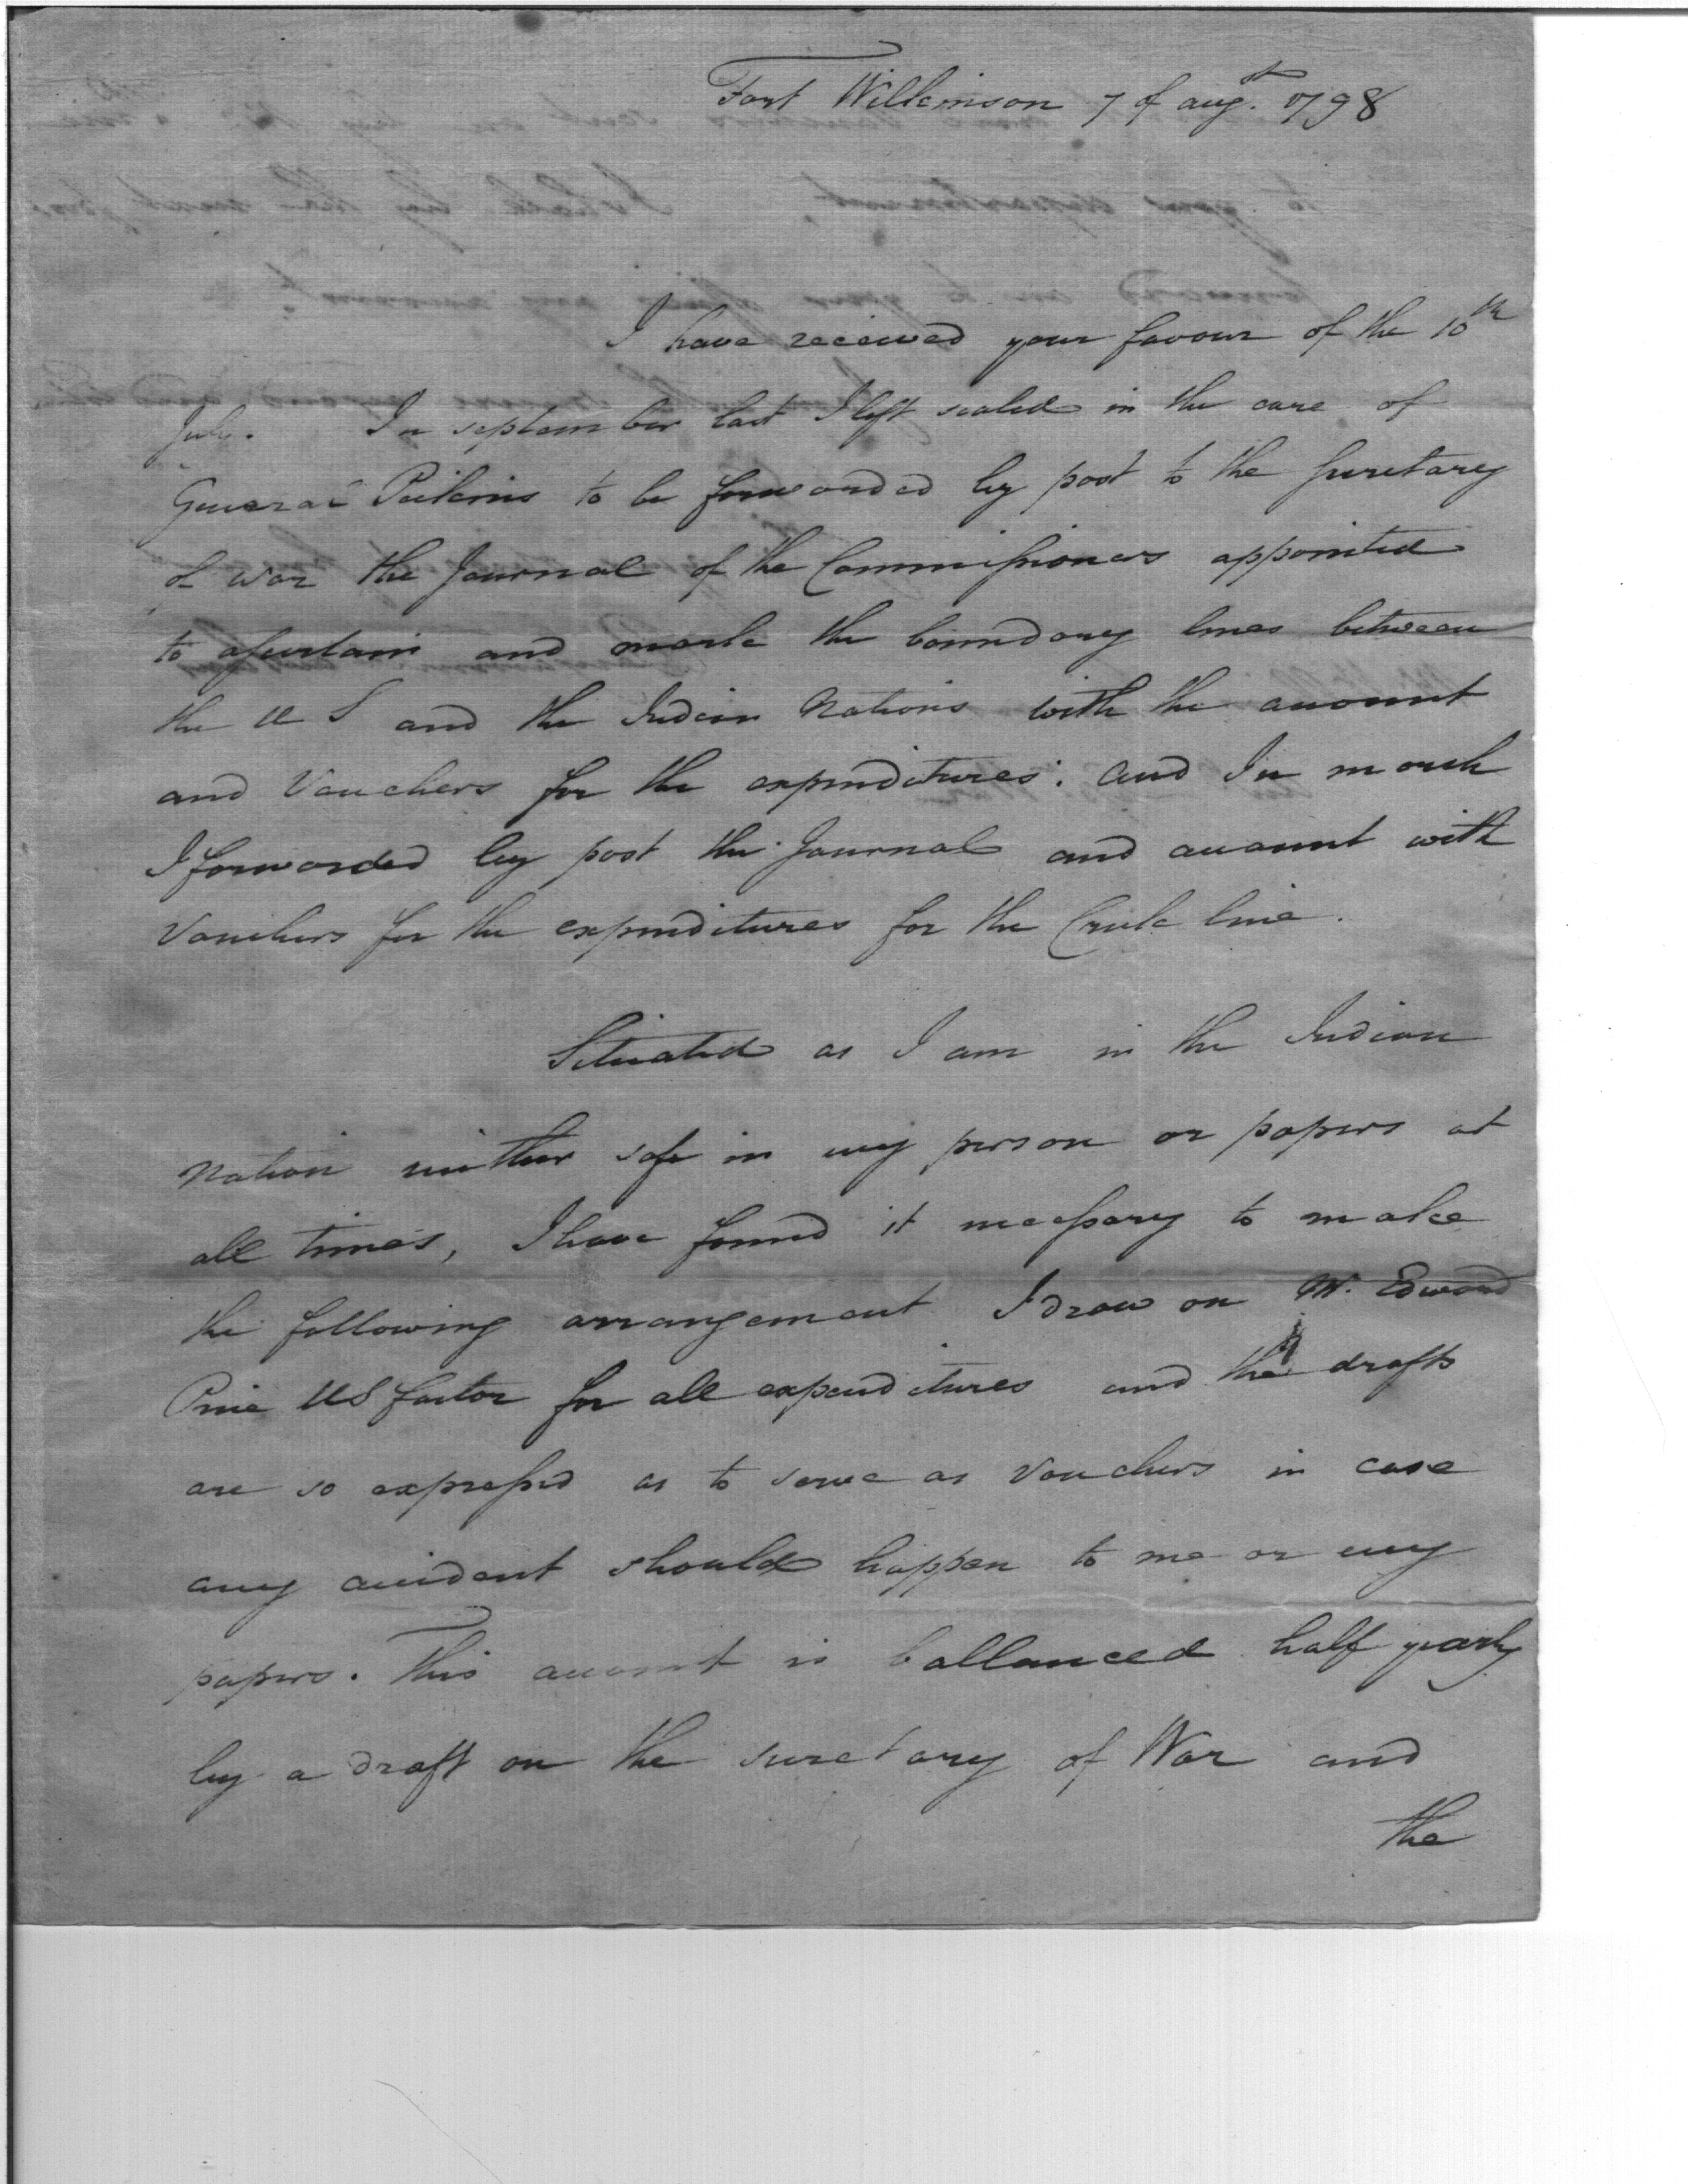 Fort Wilkinson 7 of augst. 1798
I have received your favour of the 10th
July. In september last I left sealed in the care of
General Pickens to be forwarded by post to the secretary
of war the Journal of the Commissioners appointed
to ascertain and mark the boundary lines between
the U S and the Indian Nations with the account
and Vouchers for the expenditures: and In march
I forwarded by post the Journal and account with
Vouchers for the expenditures for the Creek line.
Situated as I am in the Indian
Nation neither safe in my person or papers at
all times, I have found it necessary to make
the following arrangement I draw on Mr. Edward
Price US factor for all expenditures and the drafts
are so expressed as to serve as Vouchers in case
any accident should happen to me or my
papers. This account is ballanced half yearly
by a draft on the secretary of War and
the